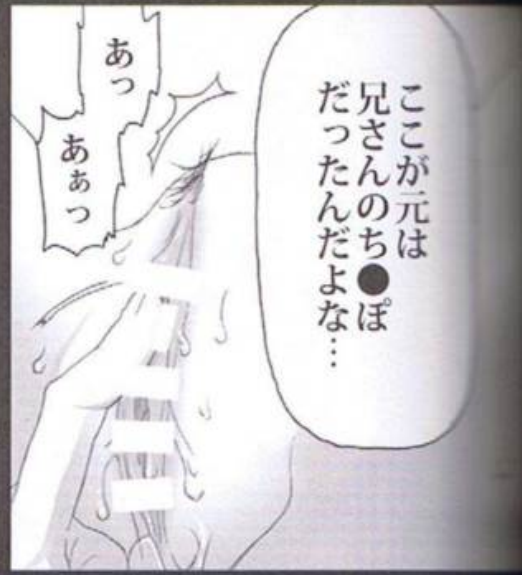 ここが元は
兄さんのち●ぽ
だったんだよな…
あっ
あぁっ